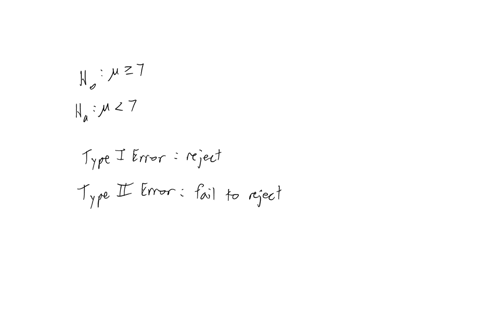 H₀: μ ≥ 7
Hₐ: μ < 7
Type I Error: reject
Type II Error: fail to reject